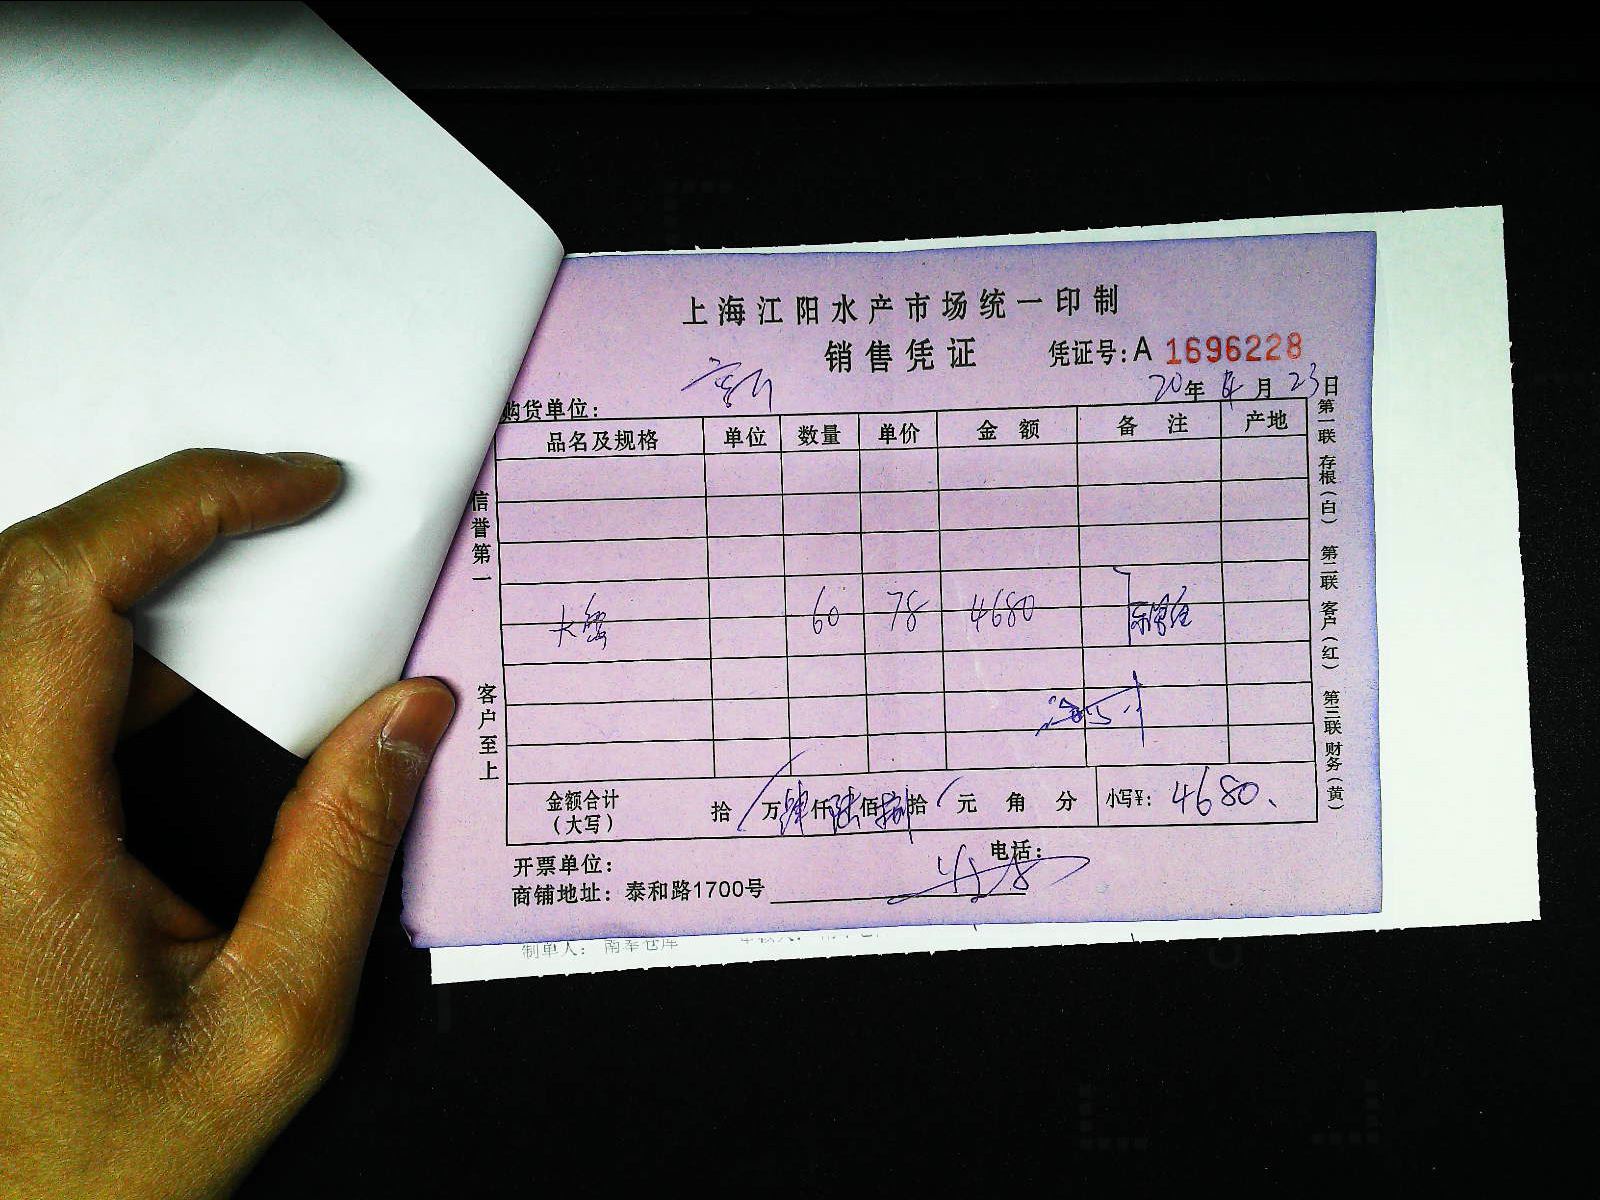 上海江阳水产市场统一印制
销售凭证 凭证号:A 1696228
购货单位: 20年 4月 23日
品名及规格 单位 数量 单价 金额 备注 产地
大蟹 60 78 4680
金额合计(大写) 拾 万 肆仟 陆佰 捌拾 元 角 分 小写¥: 4680
开票单位: 电话:
商铺地址: 泰和路1700号
信誉第一
客户至上
第一联 存根(白) 第二联 客户(红) 第三联 财务(黄)
制单人: 南奉仓库